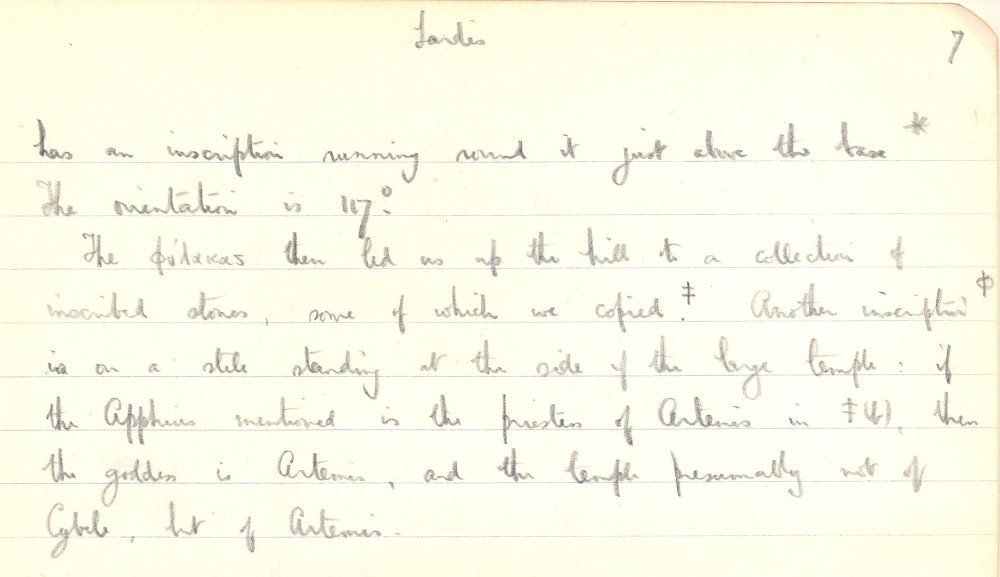 Sardis 7
has an inscription running round it just above the base *
The orientation is 117°.
The φύλακας then led us up the hill to a collection of
inscribed stones, some of which we copied.‡ Another inscription ϕ
is on a stele standing at the side of the large temple: if
the Apphias mentioned is the priestess of Artemis in ‡(b), then
the goddess is Artemis, and the temple presumably not of
Cybele, but of Artemis.